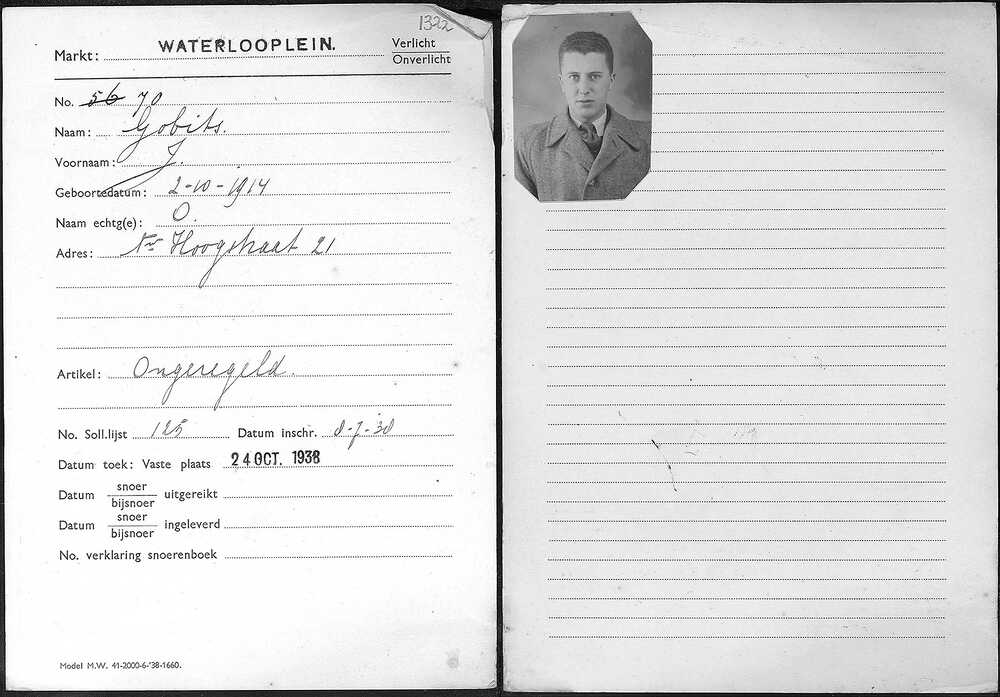 1322
Markt: WATERLOOPLEIN. Verlicht
Onverlicht
No. 56 70
Naam: Gobits.
Voornaam: J.
Geboortedatum: 2-10-1914
Naam echtg(e): O.
Adres: Nwe Hoogstraat 21
Artikel: Ongeregeld.
No. Soll.lijst 125 Datum inschr. 8-7-38
Datum toek: Vaste plaats 24 OCT. 1938
Datum snoer uitgereikt
bijsnoer
Datum snoer ingeleverd
bijsnoer
No. verklaring snoerenboek
Model M.W. 41-2000-6-'38-1660.